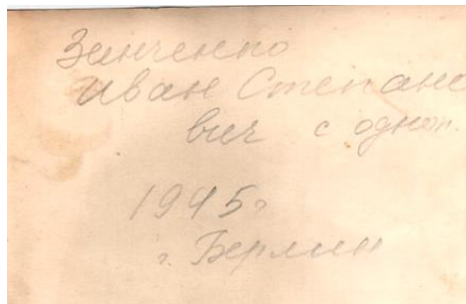 Зинченко
Иван Степано
вич с одноп.
1945г
г. Берлин